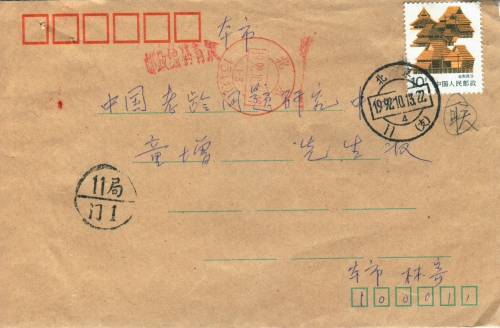 本市
中国老龄问题研究中
童增 先生收
10
中国人民邮政
北京
1992.10.13.22
4
11 (支)
11局
门1
本市 林寄
100011